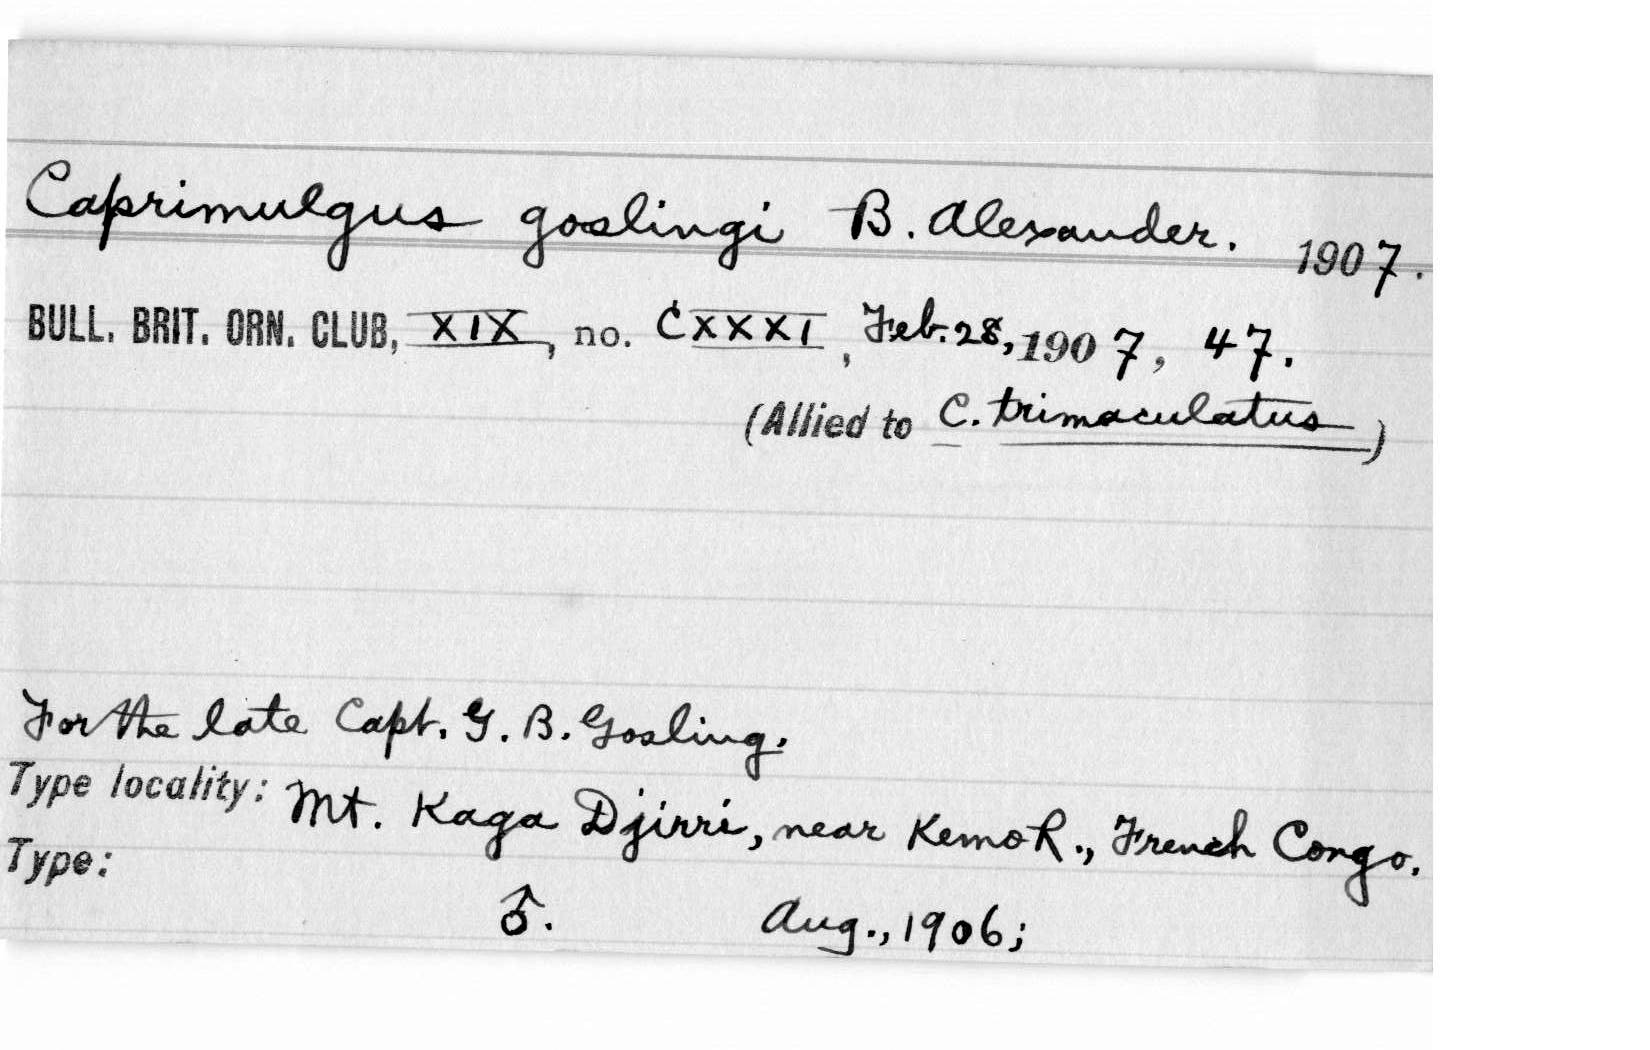 Caprimulgus goslingi B. Alexander. 1907.
BULL. BRIT. ORN. CLUB, XIX, no. CXXXI, Feb. 28, 1907, 47.
(Allied to C. trimaculatus)
For the late Capt. G. B. Gosling.
Type locality: Mt. Kaga Djirri, near Kemo R., French Congo.
Type:
♂. Aug., 1906;